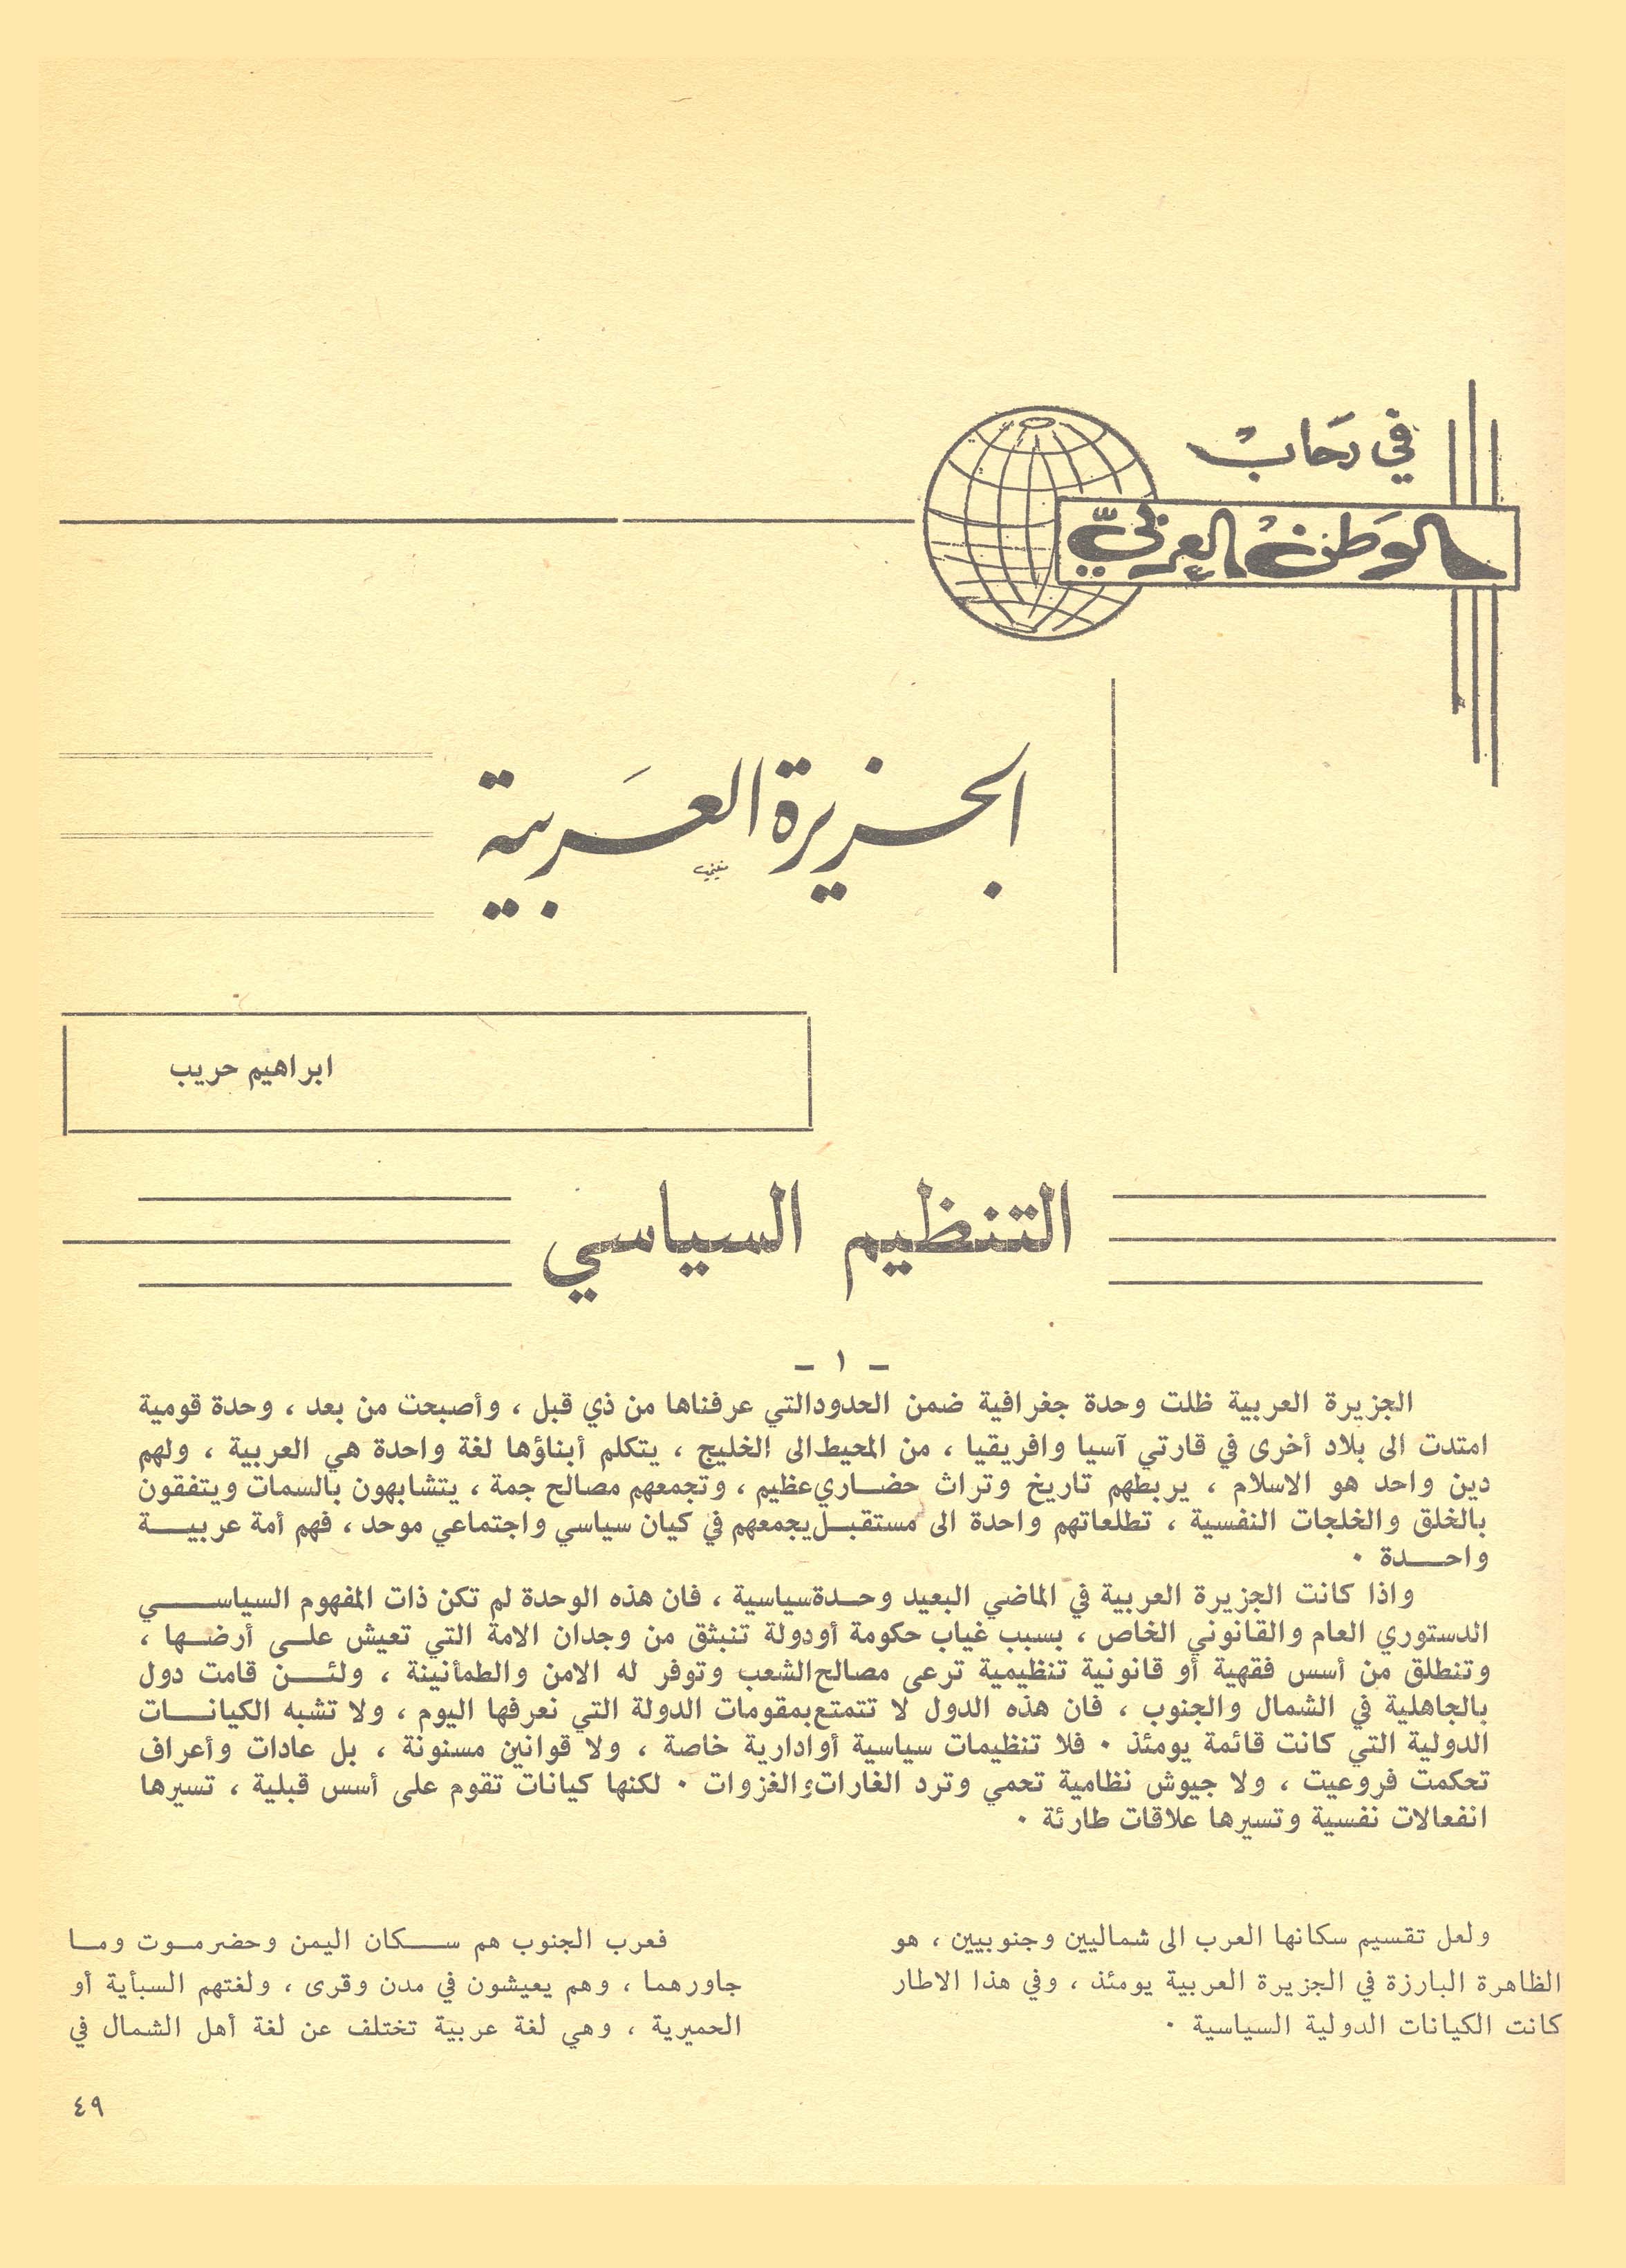 في رحاب
الوطن العربي
الجزيرة العربية
ابراهيم حريب
التنظيم السياسي
- ١ -
الجزيرة العربية ظلت وحدة جغرافية ضمن الحدودالتي عرفناها من ذي قبل ، وأصبحت من بعد ، وحدة قومية
امتدت الى بلاد أخرى في قارتي آسيا وافريقيا ، من المحيطالى الخليج ، يتكلم أبناؤها لغة واحدة هي العربية ، ولهم
دين واحد هو الاسلام ، يربطهم تاريخ وتراث حضـاريعظيم ، وتجمعهم مصالح جمة ، يتشابهون بالسمات ويتفقون
بالخلق والخلجات النفسية ، تطلعاتهم واحدة الى مستقبـليجمعهم في كيان سياسي واجتماعي موحد ، فهم أمة عربيـــة
واحـــدة ٠
واذا كانت الجزيرة العربية في الماضي البعيد وحـدةسياسية ، فان هذه الوحدة لم تكن ذات المفهوم السياســـي
الدستوري العام والقانوني الخاص ، بسبب غياب حكومة أودولة تنبثق من وجدان الامة التي تعيش علـى أرضـها ،
وتنطلق من أسس فقهية أو قانونية تنظيمية ترعى مصالحالشعب وتوفر له الامن والطمأنينة ، ولئـــن قامت دول
بالجاهلية في الشمال والجنوب ، فان هذه الدول لا تتمتعبمقومات الدولة التي نعرفها اليوم ، ولا تشبه الكيانـــات
الدولية التي كانت قائمة يومئذ ٠ فلا تنظيمات سياسية أوادارية خاصة ، ولا قوانين مسنونة ، بل عادات وأعراف
تحكمت فروعيت ، ولا جيوش نظامية تحمي وترد الغاراتوالغزوات ٠ لكنها كيانات تقوم على أسس قبلية ، تسيرها
انفعالات نفسية وتسيرها علاقات طارئة ٠
ولعل تقسيم سكانها العرب الى شماليين وجنوبيين ، هو
الظاهرة البارزة في الجزيرة العربية يومئذ ، وفي هذا الاطار
كانت الكيانات الدولية السياسية ٠
فعرب الجنوب هم ســـكان اليمن وحضرمـوت ومـا
جاورهما ، وهم يعيشون في مدن وقرى ، ولغتهم السبأية أو
الحميرية ، وهي لغة عربية تختلف عن لغة أهل الشمال في
٤٩